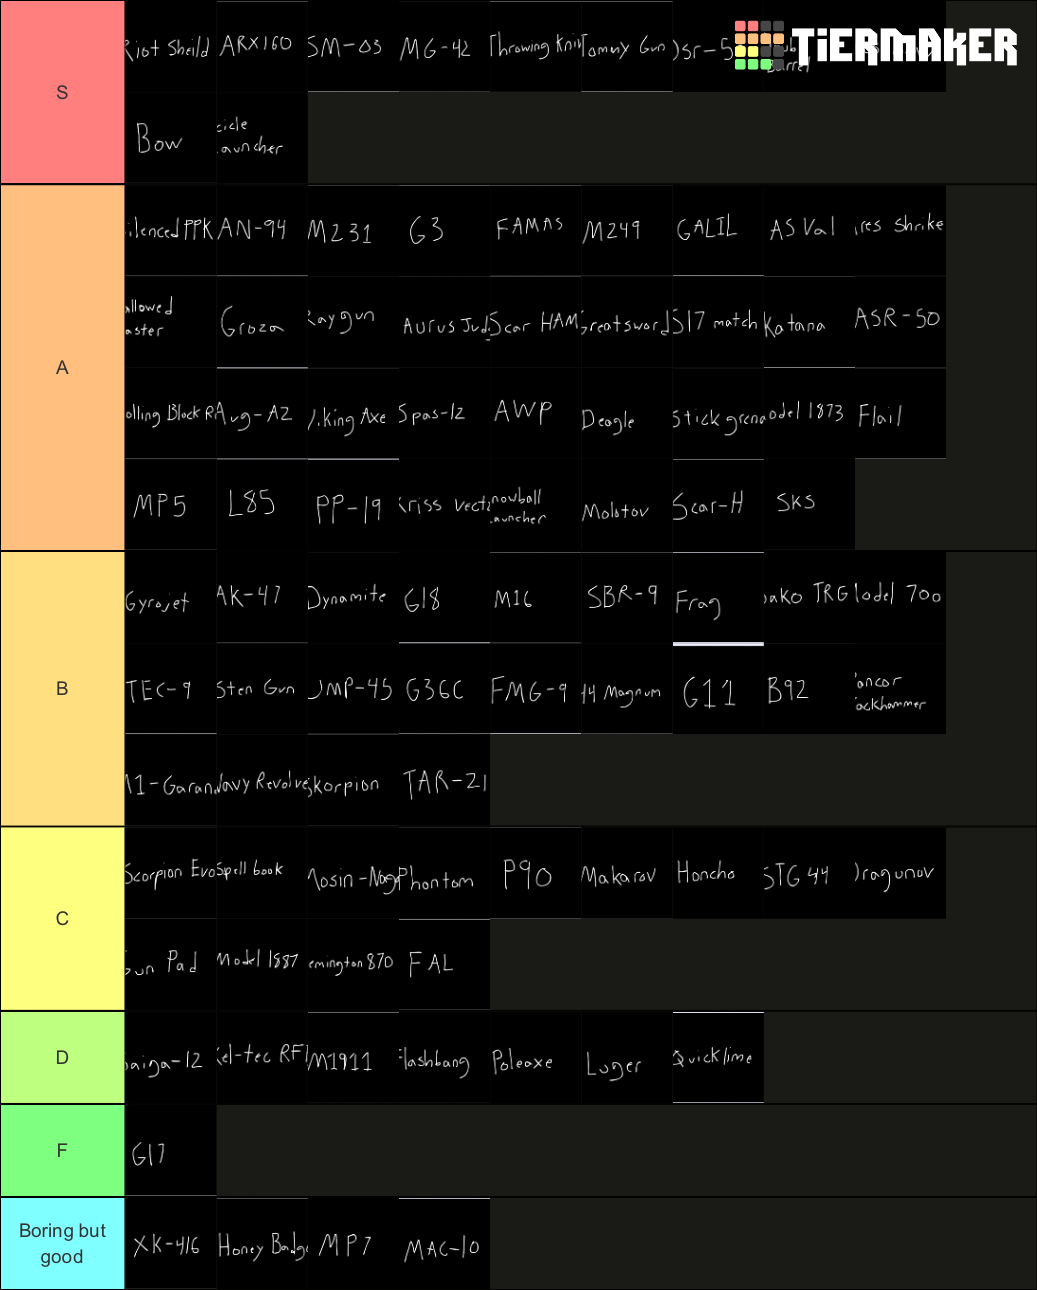 S
Riot Sheild ARX160 SM-03 MG-42 Throwing Kni Tommy Gun Dsr-5
Barrel
TiERMAKER
Bow icle
launcher
A
ilenced PPK AN-94 M231 G3 FAMAS M249 GALIL AS Val ires Shrike
allowed
aster
Groza Raygun Aurus Jud Scar HAM Greatsword S17 match Katana ASR-50
olling Block R Aug-A2 Viking Axe Spas-12 AWP Deagle Stick grena odel 1873 Flail
MP5 L85 PP-19 Kriss Vect nowball
launcher
Molotov Scar-H SKS
B
Gyrojet AK-47 Dynamite G18 M16 SBR-9 Frag ako TRG Model 700
TEC-9 Sten Gun UMP-45 G36C FMG-9 44 Magnum G11 B92 Pancor
ackhammer
M1-Garan Navy Revolve Skorpion TAR-21
C
Scorpion Evo Spell book Mosin-Nag Phantom P90 Makarov Honcho STG 44 Dragunov
Gun Pad Model 1887 emington 870 FAL
D
aiga-12 Kel-tec RF M1911 Flashbang Poleaxe Luger Quicklime
F
G17
Boring but
good
XK-416 Honey Badg MP7 MAC-10